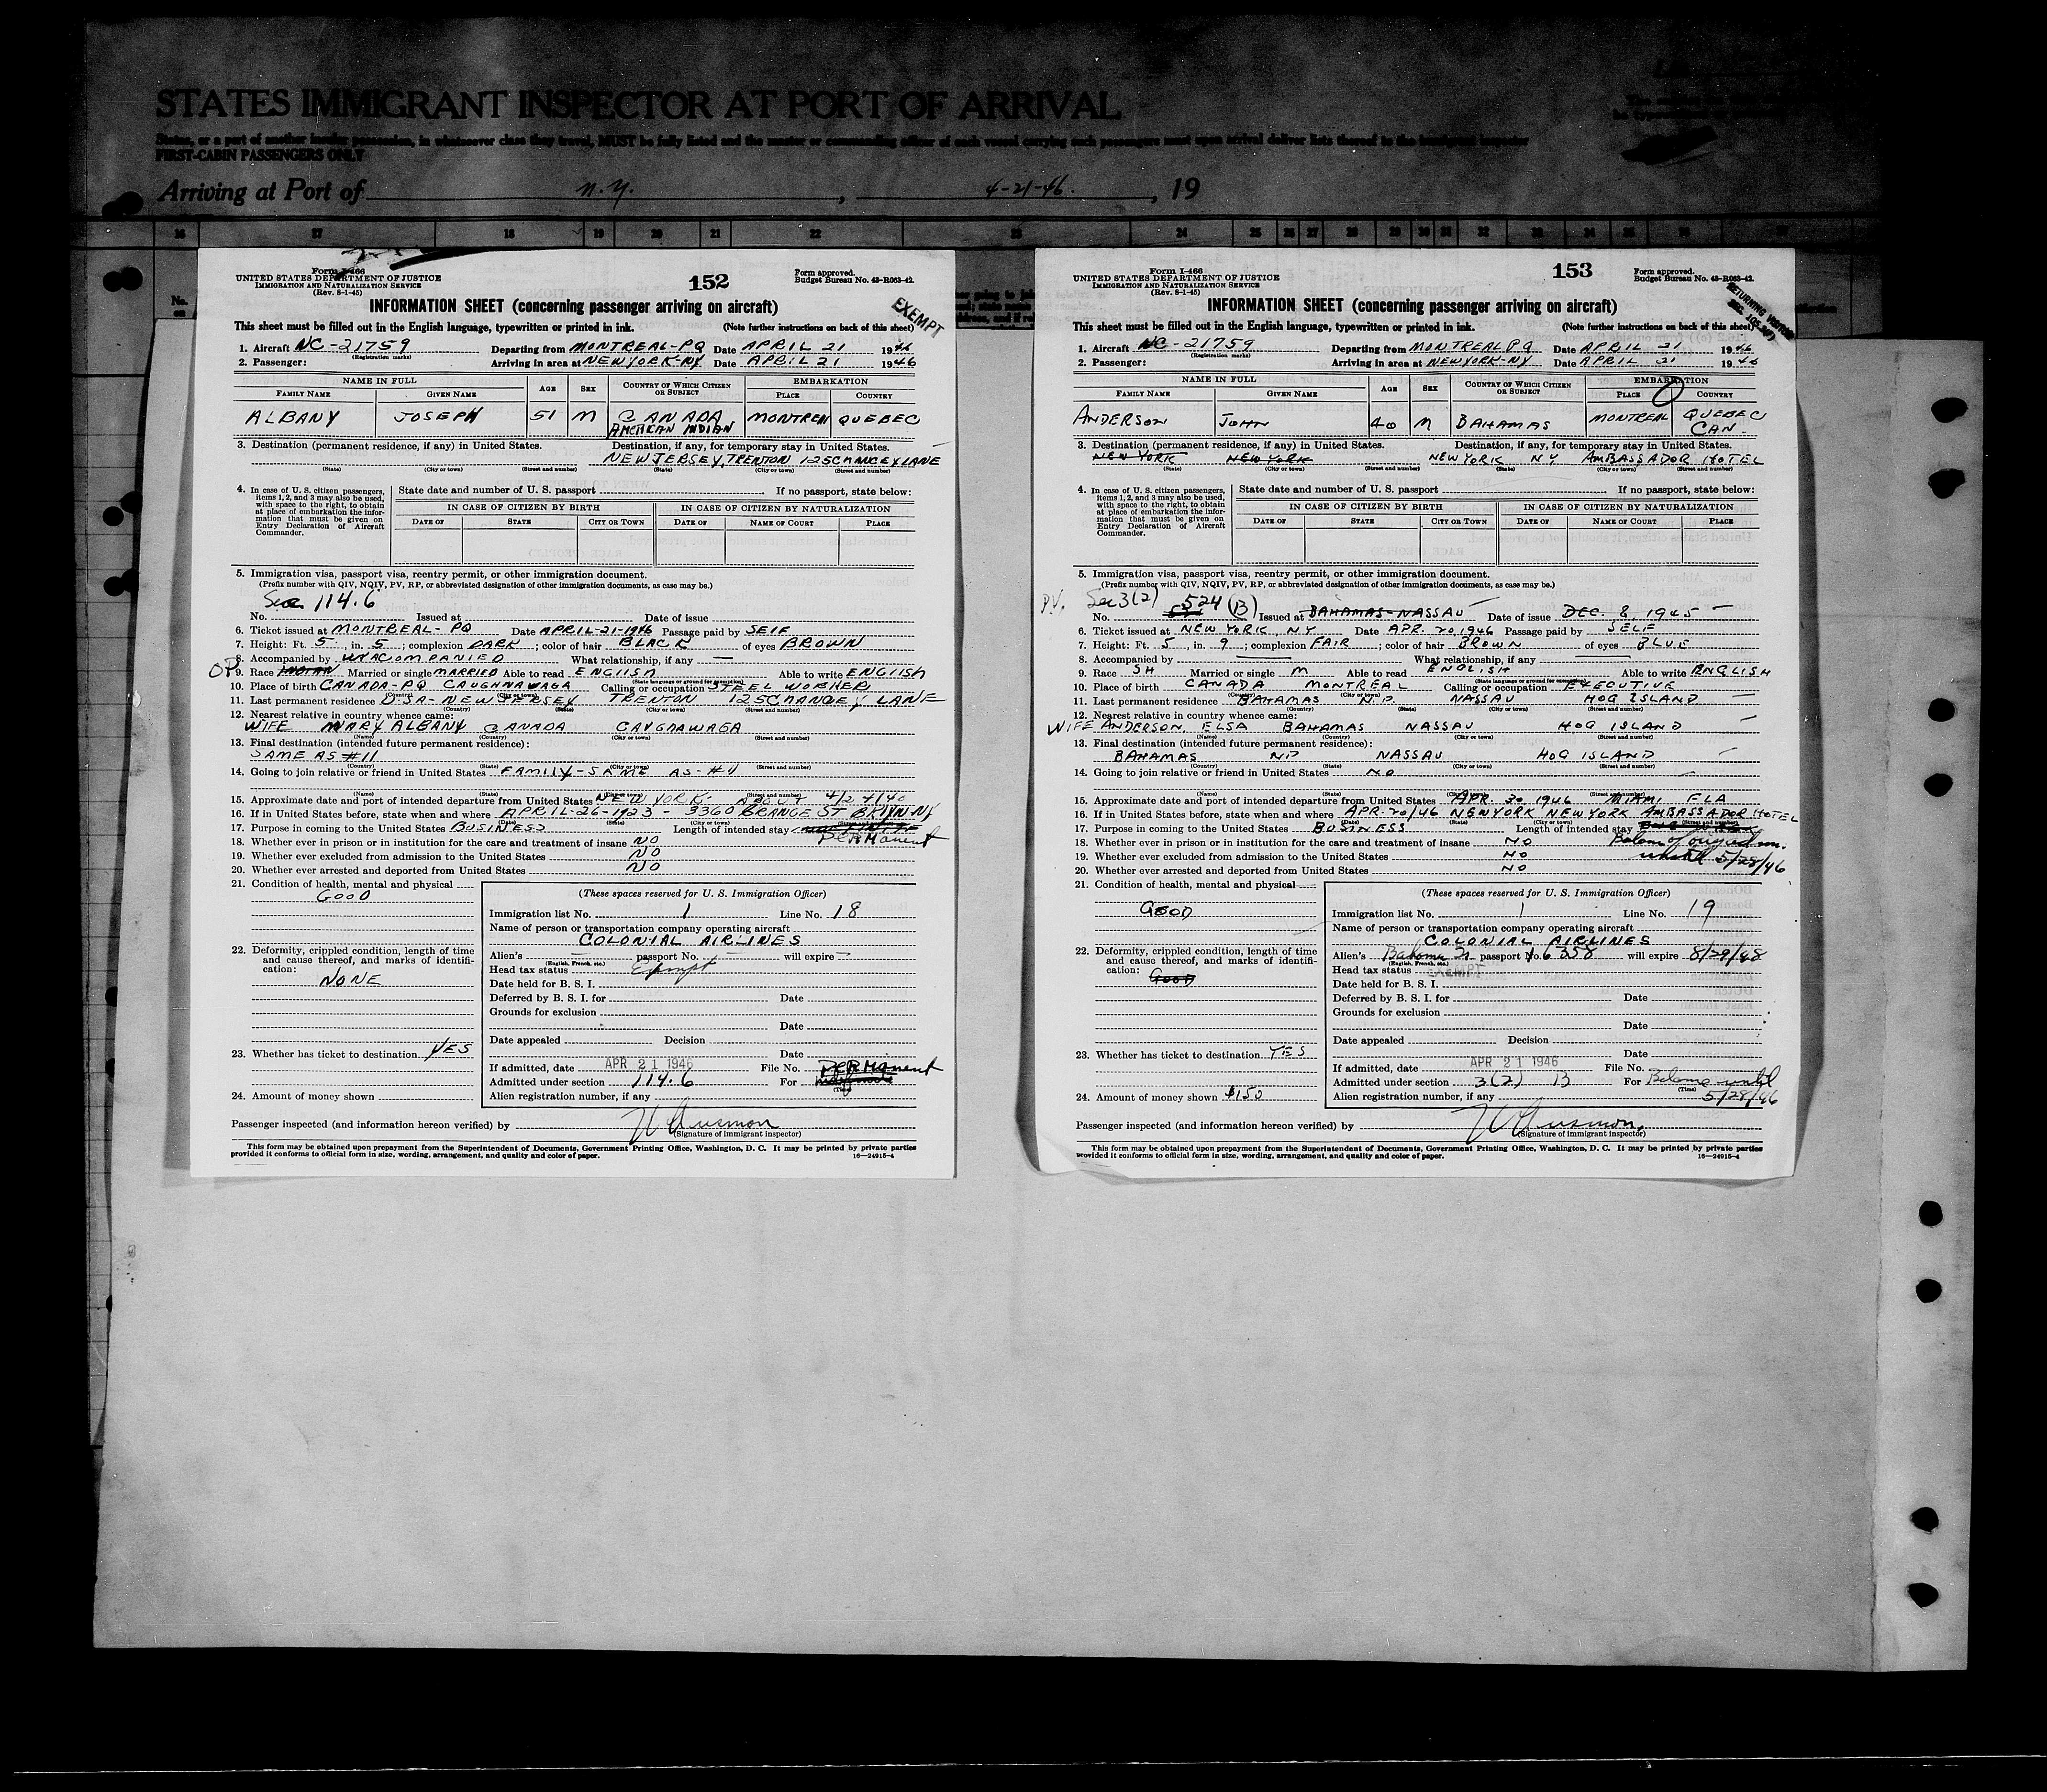 STATES IMMIGRANT INSPECTOR AT PORT OF ARRIVAL
States, or a part of another insular possession, in whatsoever class they travel, MUST be fully listed and the master or commanding officer of each vessel carrying such passengers must upon arrival deliver lists thereof to the immigrant inspector
FIRST-CABIN PASSENGERS ONLY
Arriving at Port of N.Y., 4-21-46., 19
16 17 18 19 20 21 22 23 24 25 26 27 28 29 30 31 32 33 34 35 36
No.
Form I-466
UNITED STATES DEPARTMENT OF JUSTICE
IMMIGRATION AND NATURALIZATION SERVICE
(Rev. 8-1-45)
152
Form approved.
Budget Bureau No. 43-R063-42.
INFORMATION SHEET (concerning passenger arriving on aircraft)
EXEMPT
This sheet must be filled out in the English language, typewritten or printed in ink. (Note further instructions on back of this sheet)
1. Aircraft NC-21759 Departing from MONTREAL-PQ Date APRIL 21 1946
(Registration marks)
2. Passenger: Arriving in area at NEWYORK-NY Date APRIL 21 1946
NAME IN FULL AGE SEX COUNTRY OF WHICH CITIZEN OR SUBJECT EMBARKATION
FAMILY NAME GIVEN NAME PLACE COUNTRY
ALBANY JOSEPH 51 M CANADA AMERICAN INDIAN MONTREAL QUEBEC
3. Destination (permanent residence, if any) in United States. Destination, if any, for temporary stay in United States.
NEW JERSEY, TRENTON 125 CHANCEY LANE
(State) (City or town) (Street and number) (State) (City or town) (Street and number)
4. In case of U. S. citizen passengers, items 1, 2, and 3 may also be used, with space to the right, to obtain at place of embarkation the information that must be given on Entry Declaration of Aircraft Commander.
State date and number of U. S. passport If no passport, state below:
IN CASE OF CITIZEN BY BIRTH IN CASE OF CITIZEN BY NATURALIZATION
DATE OF STATE CITY OR TOWN DATE OF NAME OF COURT PLACE
5. Immigration visa, passport visa, reentry permit, or other immigration document.
(Prefix number with QIV, NQIV, PV, RP, or abbreviated designation of other immigration documents, as case may be.)
Sec 114.6
No. Issued at Date of issue
6. Ticket issued at MONTREAL-PQ Date APRIL-21-1946 Passage paid by SELF
7. Height: Ft. 5, in. 5; complexion DARK; color of hair BLACK of eyes BROWN
8. Accompanied by UNACOMPANIED What relationship, if any —
9. Race INDIAN Married or single MARRIED Able to read ENGLISH Able to write ENGLISH
(State language or ground for exemption)
10. Place of birth CANADA-PQ CAUGHNAWAGA Calling or occupation STEEL WORKER
(Country) (City or town)
11. Last permanent residence USA-NEW JERSEY TRENTON
(Country) (State) (City or town) (Street and number)
12. Nearest relative in country whence came:
WIFE MARY ALBANY CANADA CAYGNAWAGA
(Name) (Country) (City or town) (Street and number)
13. Final destination (intended future permanent residence):
SAME AS #11
(Country) (State) (City or town) (Street and number)
14. Going to join relative or friend in United States FAMILY-SAME AS-#11
(Name) (State) (City or town) (Street and number)
15. Approximate date and port of intended departure from United States NEW YORK- ABOUT
16. If in United States before, state when and where APRIL-26-1923 - 3360 ORANGE ST BKLYN NY
(Date) (State) (City or town) (Street and number)
17. Purpose in coming to the United States BUSINESS Length of intended stay PERManent
18. Whether ever in prison or in institution for the care and treatment of insane NO
19. Whether ever excluded from admission to the United States NO
20. Whether ever arrested and deported from United States NO
21. Condition of health, mental and physical
GOOD
22. Deformity, crippled condition, length of time and cause thereof, and marks of identification:
NONE
23. Whether has ticket to destination. YES
24. Amount of money shown
(These spaces reserved for U. S. Immigration Officer)
Immigration list No. 1 Line No. 18
Name of person or transportation company operating aircraft
COLONIAL AIRLINES
Alien's — passport No. — will expire —
(English, French, etc.)
Head tax status Exempt
Date held for B. S. I.
Deferred by B. S. I. for Date
Grounds for exclusion
Date
Date appealed Decision
Date
If admitted, date APR 21 1946 File No. PERManent
Admitted under section 114.6 For
(Time)
Alien registration number, if any
Passenger inspected (and information hereon verified) by
(Signature of immigrant inspector)
This form may be obtained upon prepayment from the Superintendent of Documents, Government Printing Office, Washington, D. C. It may be printed by private parties
provided it conforms to official form in size, wording, arrangement, and quality and color of paper. 16—24915-4
Form I-466
UNITED STATES DEPARTMENT OF JUSTICE
IMMIGRATION AND NATURALIZATION SERVICE
(Rev. 8-1-45)
153
Form approved.
Budget Bureau No. 43-R063-42.
INFORMATION SHEET (concerning passenger arriving on aircraft)
RETURNING VISITOR
This sheet must be filled out in the English language, typewritten or printed in ink. (Note further instructions on back of this sheet)
1. Aircraft NC-21759 Departing from MONTREAL PQ Date APRIL 21 1946
(Registration marks)
2. Passenger: Arriving in area at NEWYORK-NY Date APRIL 21 1946
NAME IN FULL AGE SEX COUNTRY OF WHICH CITIZEN OR SUBJECT EMBARKATION
FAMILY NAME GIVEN NAME PLACE COUNTRY
ANDERSON JOHN 40 M BAHAMAS MONTREAL QUEBEC CAN-
3. Destination (permanent residence, if any) in United States. Destination, if any, for temporary stay in United States.
NEW YORK NEW YORK NEW YORK NY AMBASSADOR HOTEL
(State) (City or town) (Street and number) (State) (City or town) (Street and number)
4. In case of U. S. citizen passengers, items 1, 2, and 3 may also be used, with space to the right, to obtain at place of embarkation the information that must be given on Entry Declaration of Aircraft Commander.
State date and number of U. S. passport If no passport, state below:
IN CASE OF CITIZEN BY BIRTH IN CASE OF CITIZEN BY NATURALIZATION
DATE OF STATE CITY OR TOWN DATE OF NAME OF COURT PLACE
5. Immigration visa, passport visa, reentry permit, or other immigration document.
(Prefix number with QIV, NQIV, PV, RP, or abbreviated designation of other immigration documents, as case may be.)
P.V. Sec 3(2) 524 (B)
No. Issued at BAHAMAS-NASSAU Date of issue DEC. 8, 1945
6. Ticket issued at NEW YORK, NY Date APR. 20 1946 Passage paid by SELF
7. Height: Ft. 5, in. 9; complexion FAIR; color of hair BROWN of eyes BLUE
8. Accompanied by — What relationship, if any —
9. Race SH Married or single M Able to read ENGLISH Able to write ENGLISH
(State language or ground for exemption)
10. Place of birth CANADA MONTREAL Calling or occupation EXECUTIVE
(Country) (City or town)
11. Last permanent residence BAHAMAS N.P. NASSAU HOG ISLAND
(Country) (State) (City or town) (Street and number)
12. Nearest relative in country whence came:
WIFE ANDERSON, ELSA BAHAMAS NASSAU HOG ISLAND
(Name) (Country) (City or town) (Street and number)
13. Final destination (intended future permanent residence):
BAHAMAS NP NASSAU HOG ISLAND
(Country) (State) (City or town) (Street and number)
14. Going to join relative or friend in United States NO
(Name) (State) (City or town) (Street and number)
15. Approximate date and port of intended departure from United States APR. 30 1946 MIAMI FLA
16. If in United States before, state when and where APR. 20/46 NEWYORK NEWYORK AMBASSADOR HOTEL
(Date) (State) (City or town) (Street and number)
17. Purpose in coming to the United States BUSINESS Length of intended stay
18. Whether ever in prison or in institution for the care and treatment of insane NO
19. Whether ever excluded from admission to the United States NO until 5/28/46
20. Whether ever arrested and deported from United States NO
21. Condition of health, mental and physical
GOOD
22. Deformity, crippled condition, length of time and cause thereof, and marks of identification:
GOOD
23. Whether has ticket to destination YES
24. Amount of money shown $150
(These spaces reserved for U. S. Immigration Officer)
Immigration list No. 1 Line No. 19
Name of person or transportation company operating aircraft
COLONIAL AIRLINES
Alien's passport No. 16358 will expire 8/29/48
(English, French, etc.)
Head tax status EXEMPT
Date held for B. S. I.
Deferred by B. S. I. for Date
Grounds for exclusion
Date
Date appealed Decision
Date
If admitted, date APR 21 1946 File No.
Admitted under section 3(2) B For Balance until
(Time)
Alien registration number, if any 5/28/46
Passenger inspected (and information hereon verified) by
(Signature of immigrant inspector)
This form may be obtained upon prepayment from the Superintendent of Documents, Government Printing Office, Washington, D. C. It may be printed by private parties
provided it conforms to official form in size, wording, arrangement, and quality and color of paper. 16—24915-4